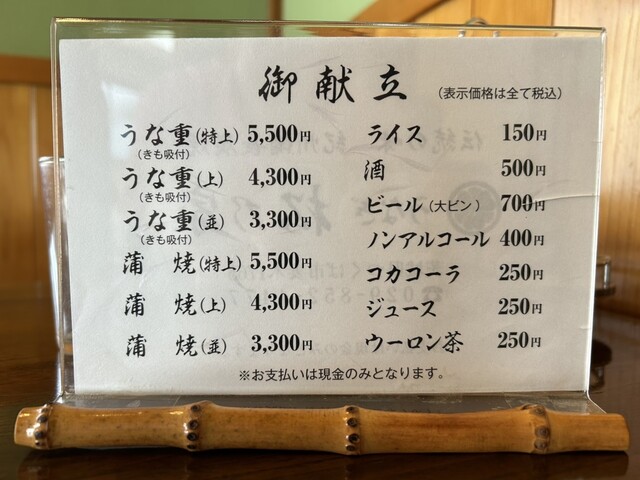 御献立
(表示価格は全て税込)
うな重(特上) 5,500円
(きも吸付)
うな重(上) 4,300円
(きも吸付)
うな重(並) 3,300円
(きも吸付)
蒲 焼(特上) 5,500円
蒲 焼(上) 4,300円
蒲 焼(並) 3,300円
ライス 150円
酒 500円
ビール(大ビン) 700円
ノンアルコール 400円
コカコーラ 250円
ジュース 250円
ウーロン茶 250円
※お支払いは現金のみとなります。